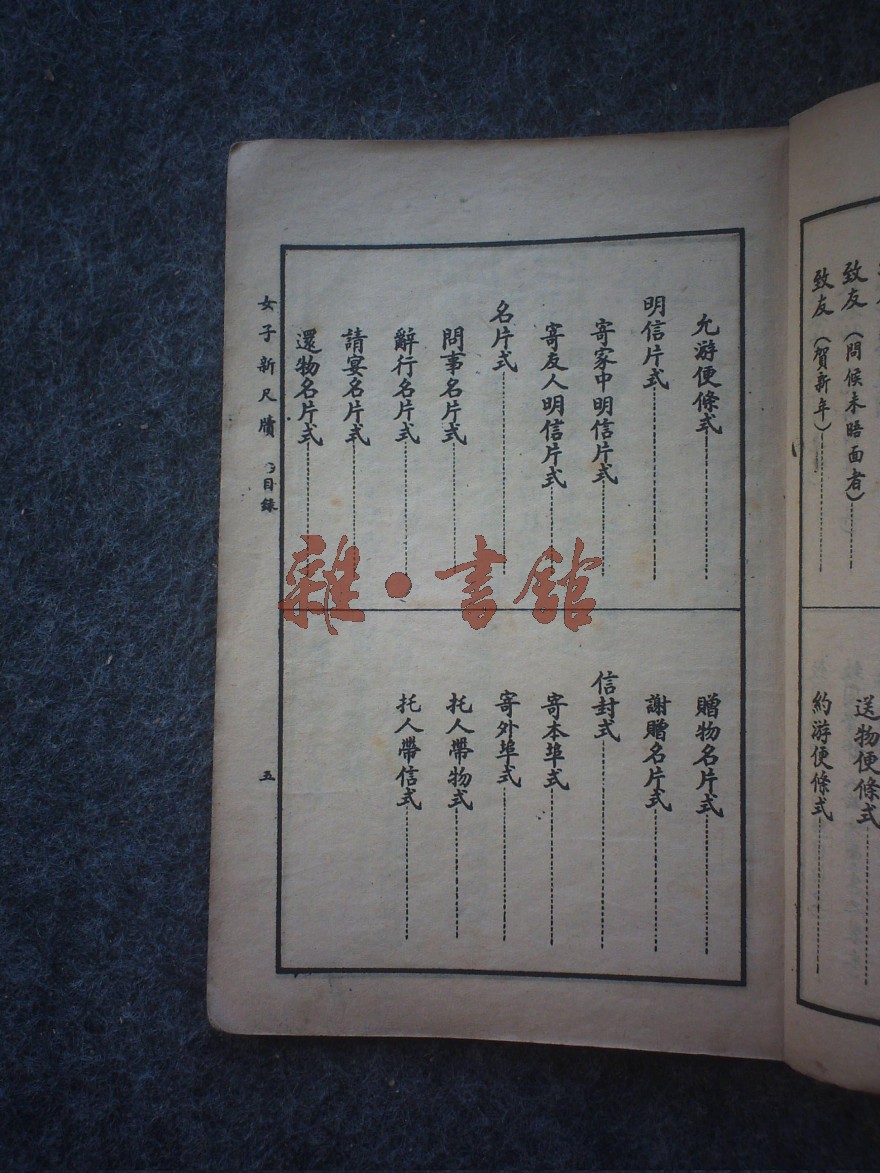 致友（問候未晤面者）
致友（賀新年）
送物便條式
約游便條式
允游便條式
明信片式
寄家中明信片式
寄友人明信片式
名片式
問事名片式
辭行名片式
請宴名片式
還物名片式
贈物名片式
謝贈名片式
信封式
寄本埠式
寄外埠式
托人帶物式
托人帶信式
女子新尺牘 目錄
五
雜·書館